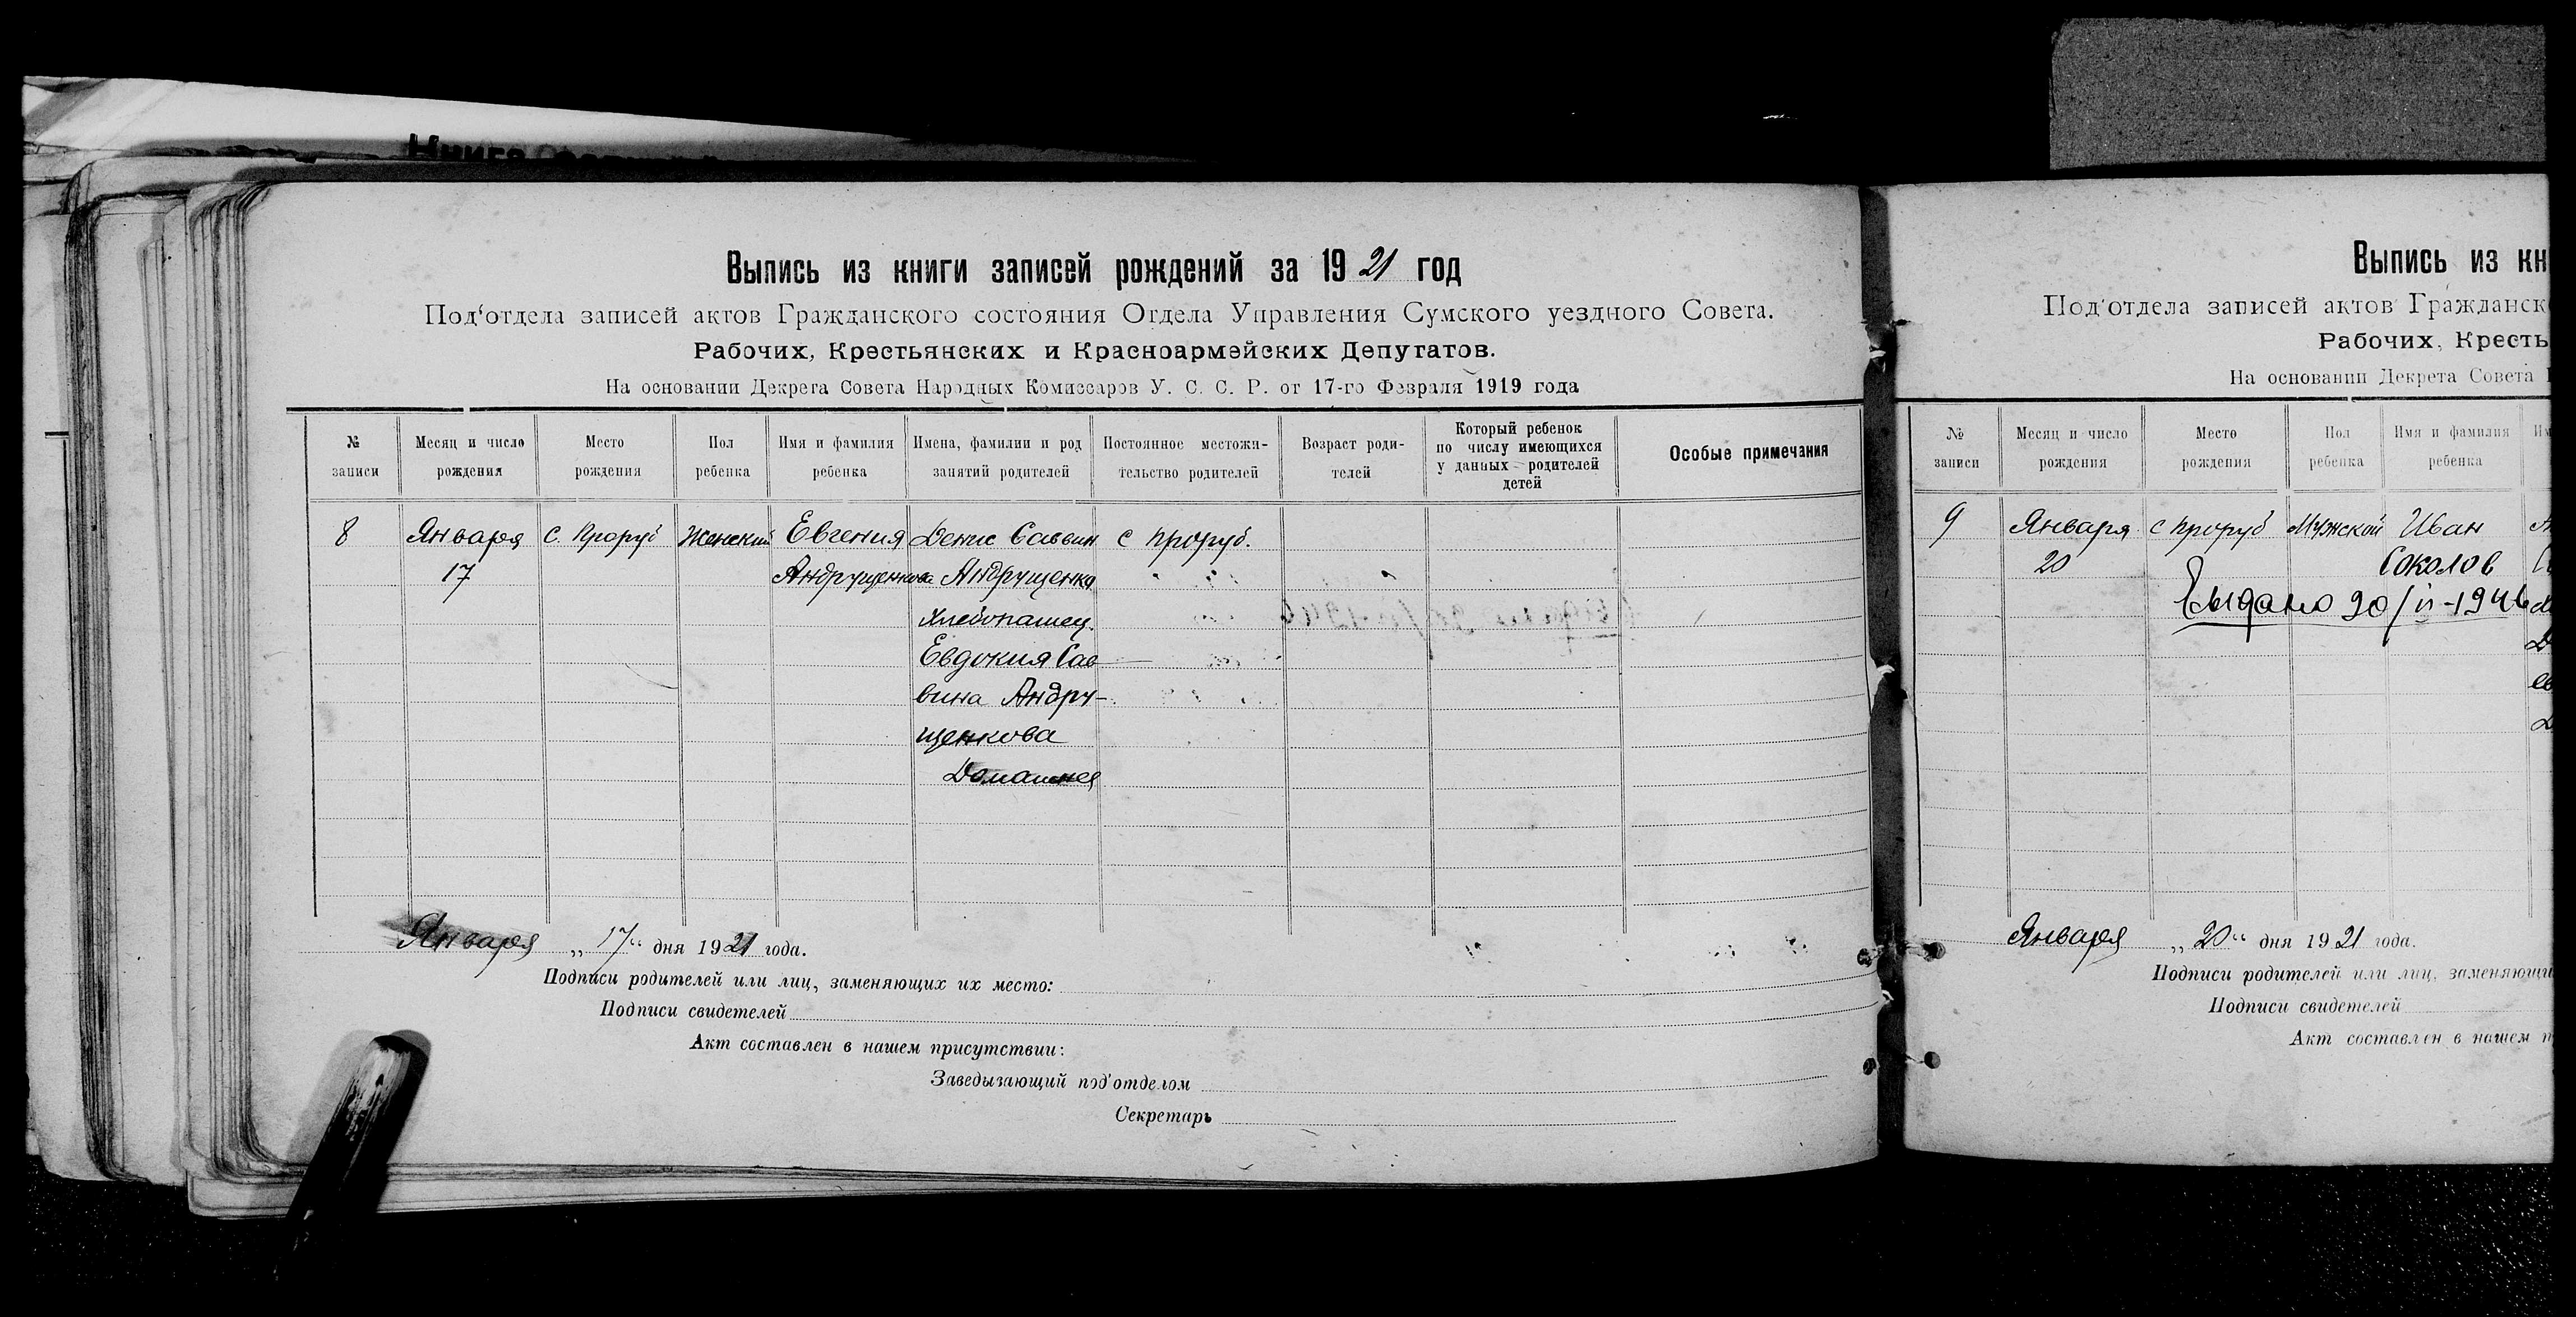 Книга
Выпись из книги записей рождений за 1921 год
Под'отдела записей актов Гражданского состояния Отдела Управления Сумского уездного Совета.
Рабочих, Крестьянских и Красноармейских Депутатов.
На основании Декрета Совета Народных Комиссаров У. С. С. Р. от 17-го Февраля 1919 года
№ записи
Месяц и число рождения
Место рождения
Пол ребенка
Имя и фамилия ребенка
Имена, фамилии и род занятий родителей
Постоянное местожительство родителей
Возраст родителей
Который ребенок по числу имеющихся у данных родителей детей
Особые примечания
8 Января с. Проруб Женский Евгения Денис Саввин с Проруб.
17 Андрущенкова Андрущенко
Хлебопашец.
Евдокия Сав
вина Андру-
щенкова
Домашнея
Января „17“ дня 1921 года.
Подписи родителей или лиц, заменяющих их место:
Подписи свидетелей
Акт составлен в нашем присутствии:
Заведывающий под'отделом
Секретарь
Выпись из кн
Под'отдела записей актов Гражданск
Рабочих, Кресть
На основании Декрета Совета
№ записи
Месяц и число рождения
Место рождения
Пол ребенка
Имя и фамилия ребенка
9 Января с Проруб Мужской Иван
20 Соколов
Выдано 20/VI-1946
Января „20“ дня 1921 года.
Подписи родителей или лиц, заменяющи
Подписи свидетелей
Акт составлен в нашем п